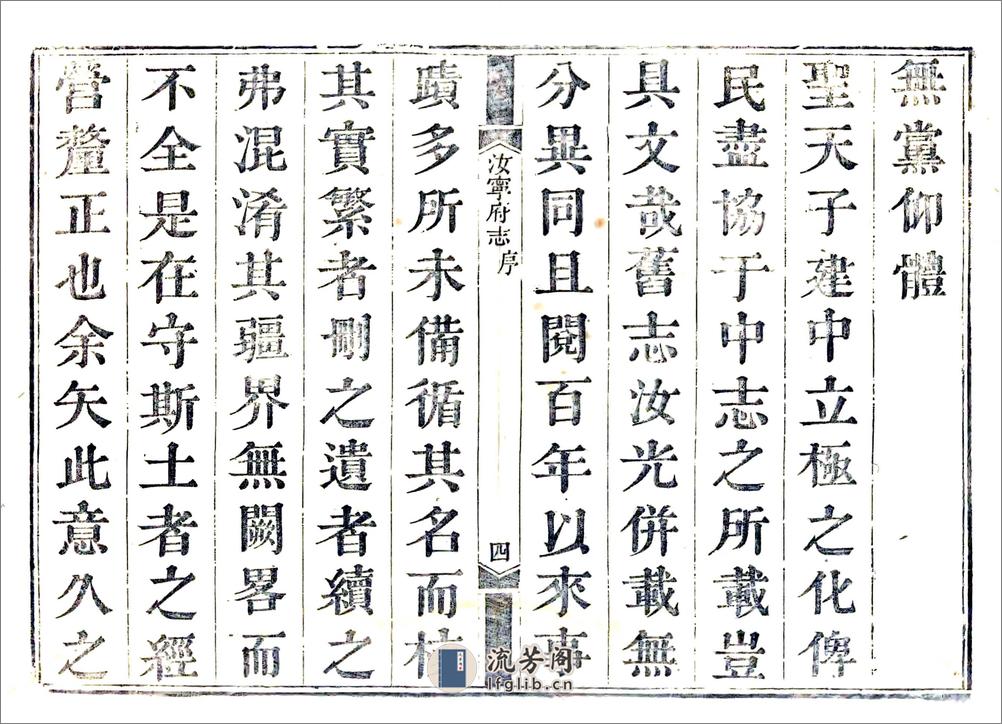 無黨仰體
聖天子建中立極之化俾
民盡協于中志之所載豈
具文哉舊志汝光併載無
分異同且閱百年以來事
汝寧府志 序 四
蹟多所未備循其名而核
其實繁者刪之遺者續之
弗混淆其疆界無闕畧而
不全是在守斯土者之經
營釐正也余矢此意久之
流芳阁
lfglib.cn